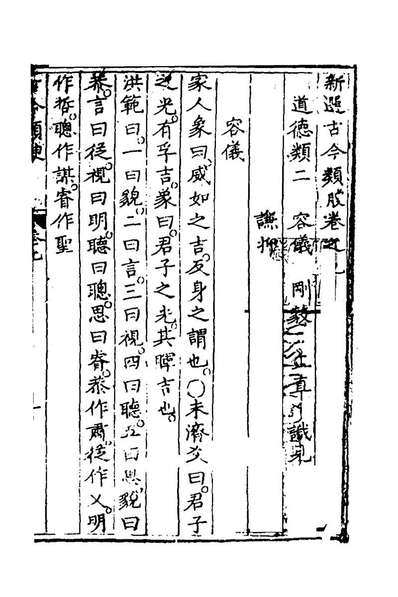 新選古今類腴卷之九
道德類二 容儀 剛毅 正直 識見
謙抑
容儀
家人象曰威如之吉反身之謂也○未濟爻曰君子
之光有孚吉象曰君子之光其暉吉也
洪範曰一曰貌二曰言三曰視四曰聽五曰思貌曰
恭言曰從視曰明聽曰聰思曰睿恭作肅從作乂明
作哲聰作謀睿作聖
古今類腴 卷九